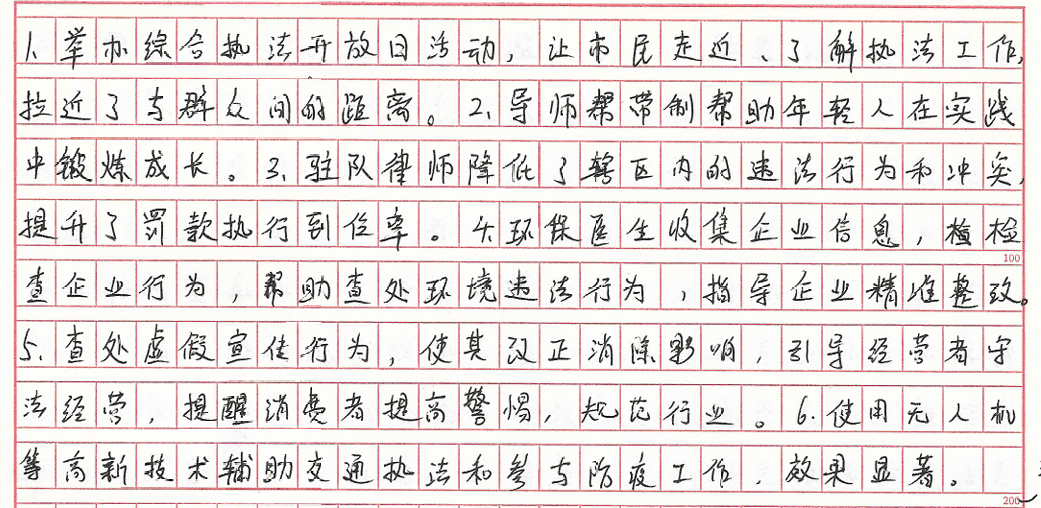 1、举办综合执法开放日活动，让市民走近、了解执法工作，
拉近了与群众间的距离。2、导师帮带制帮助年轻人在实践
中锻炼成长。3、驻队律师降低了辖区内的违法行为和冲突，
提升了罚款执行到位率。4、环保医生收集企业信息，检检
100
查企业行为，帮助查处环境违法行为，指导企业精准整改。
5、查处虚假宣传行为，使其改正消除影响，引导经营者守
法经营，提醒消费者提高警惕，规范行业。6、使用无人机
等高新技术辅助交通执法和参与防疫工作，效果显著。
200